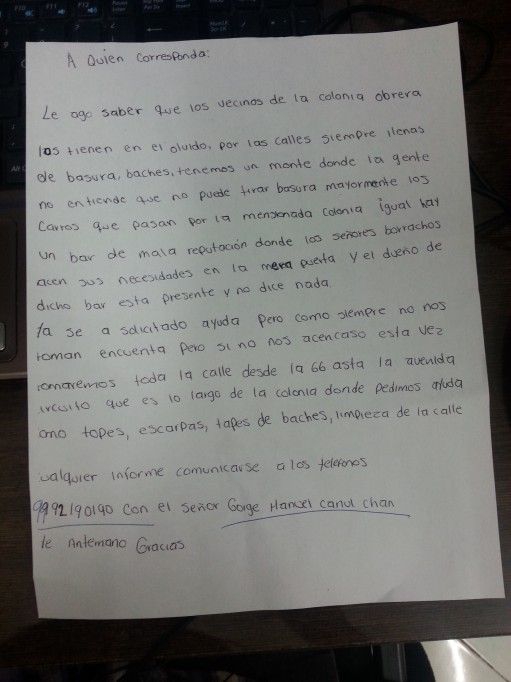 A Quien Corresponda:
Le ago saber que los vecinos de la colonia obrera
los tienen en el olvido, por las calles siempre llenas
de basura, baches, tenemos un monte donde la gente
no entiende que no puede tirar basura mayormente los
Carros que pasan por la mensionada colonia igual hay
un bar de mala reputación donde los señores borrachos
acen sus necesidades en la mera puerta y el dueño de
dicho bar esta presente y no dice nada.
Ya se a solicitado ayuda pero como siempre no nos
toman encuenta pero si no nos acencaso esta vez
tomaremos toda la calle desde la 66 asta la avenida
circuito que es lo largo de la colonia donde pedimos ayuda
como topes, escarpas, tapes de baches, limpieza de la calle
cualquier informe comunicarse a los telefonos
9992190190 con el señor Gorge Manuel canul chan
de Antemano Gracias